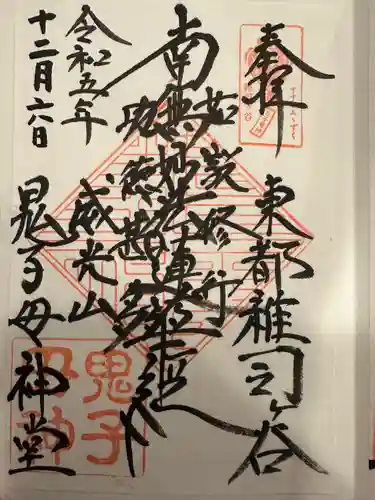 奉拝
東都雑司ヶ谷
如説修行
南無妙法蓮華経
功徳甚多
威光山
鬼子母神堂
令和五年
十二月六日
鬼子母神